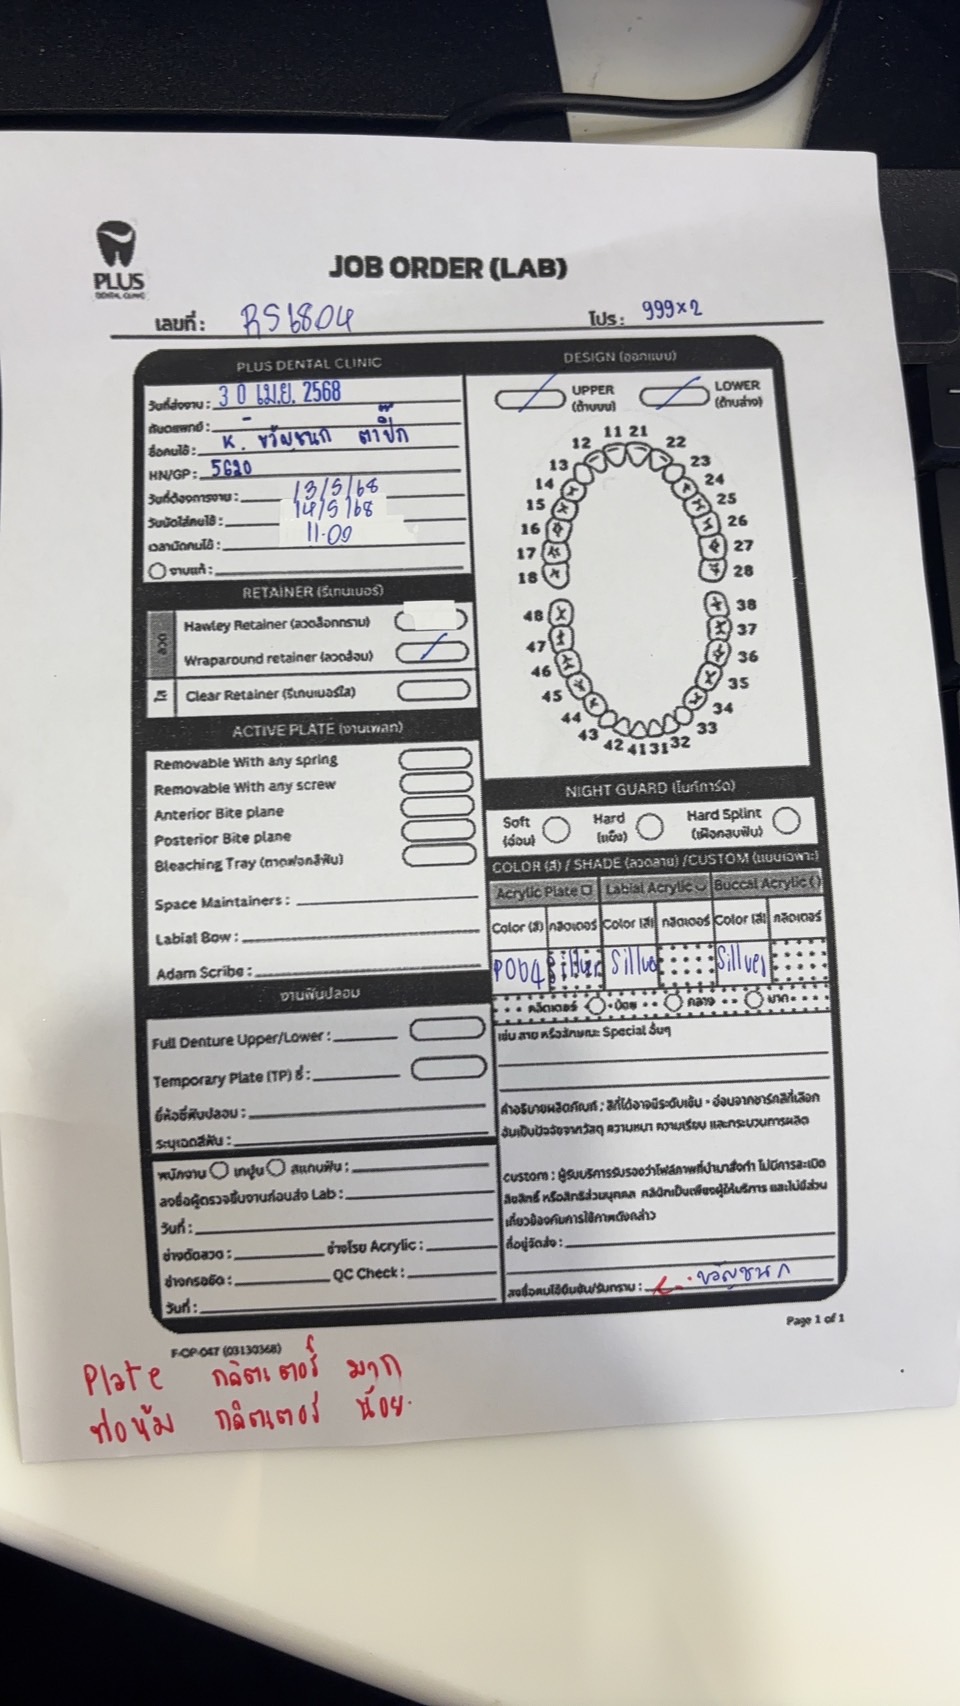 PLUS
DENTAL CLINIC
JOB ORDER (LAB)
เลขที่ : RS6804
โปร : 999x2
PLUS DENTAL CLINIC
วันที่ส่งงาน : 30 เม.ย. 2568
ทันตแพทย์ : -
ชื่อคนไข้ : K. ขวัญชนก ตาปิ๊ก
HN/GP : 5620
วันที่ต้องการงาน : 13/5/68
วันนัดใส่คนไข้ : 14/5/68
เวลานัดคนไข้ : 11.00
งานแก้ :
RETAINER (รีเทนเนอร์)
ลวด
Hawley Retainer (ลวดล็อกกราม)
Wraparound retainer (ลวดล้อม)
ใส
Clear Retainer (รีเทนเนอร์ใส)
ACTIVE PLATE (งานเพลท)
Removable With any spring
Removable With any screw
Anterior Bite plane
Posterior Bite plane
Bleaching Tray (ถาดฟอกสีฟัน)
Space Maintainers :
Labial Bow :
Adam Scribe :
งานฟันปลอม
Full Denture Upper/Lower :
Temporary Plate (TP) ซี่ :
ยี่ห้อซี่ฟันปลอม :
ระบุเฉดสีฟัน :
พนักงาน เทปูน สแกนฟัน :
ลงชื่อผู้ตรวจชิ้นงานก่อนส่ง Lab :
วันที่ :
ช่างดัดลวด : ช่างโรย Acrylic :
ช่างกรอขัด : QC Check :
วันที่ :
DESIGN (ออกแบบ)
UPPER (ด้านบน)
LOWER (ด้านล่าง)
11 21
12 22
13 23
14 24
15 25
16 26
17 27
18 28
48 38
47 37
46 36
45 35
44 34
43 33
42 41 31 32
NIGHT GUARD (ไนท์การ์ด)
Soft (อ่อน)
Hard (แข็ง)
Hard Splint (เฝือกสบฟัน)
COLOR (สี) / SHADE (ลวดลาย) /CUSTOM (แบบเฉพาะ)
Acrylic Plate Labial Acrylic Buccal Acrylic ( )
Color (สี) กลิตเตอร์ Color (สี) กลิตเตอร์ Color (สี) กลิตเตอร์
P004 Sillver Sillve Sillver
กลิตเตอร์ น้อย กลาง มาก
เช่น ลาย หรือลักษณะ Special อื่นๆ
คำอธิบายผลิตภัณฑ์ : สีที่ได้อาจมีระดับเข้ม - อ่อนจากชาร์ทสีที่เลือก
อันเป็นปัจจัยจากวัสดุ ความหนา ความเรียบ และกระบวนการผลิต
custom : ผู้รับบริการรับรองว่าไฟล์ภาพที่นำมาสั่งทำ ไม่มีการละเมิด
ลิขสิทธิ์ หรือสิทธิส่วนบุคคล คลินิกเป็นเพียงผู้ให้บริการ และไม่มีส่วน
เกี่ยวข้องกับการใช้ภาพดังกล่าว
ที่อยู่จัดส่ง :
ลงชื่อคนไข้ยืนยัน/รับทราบ : ขวัญชนก
F-OP-047 (03130368)
Page 1 of 1
Plate กลิตเตอร์ มาก
ท่อหุ้ม กลิตเตอร์ น้อย.